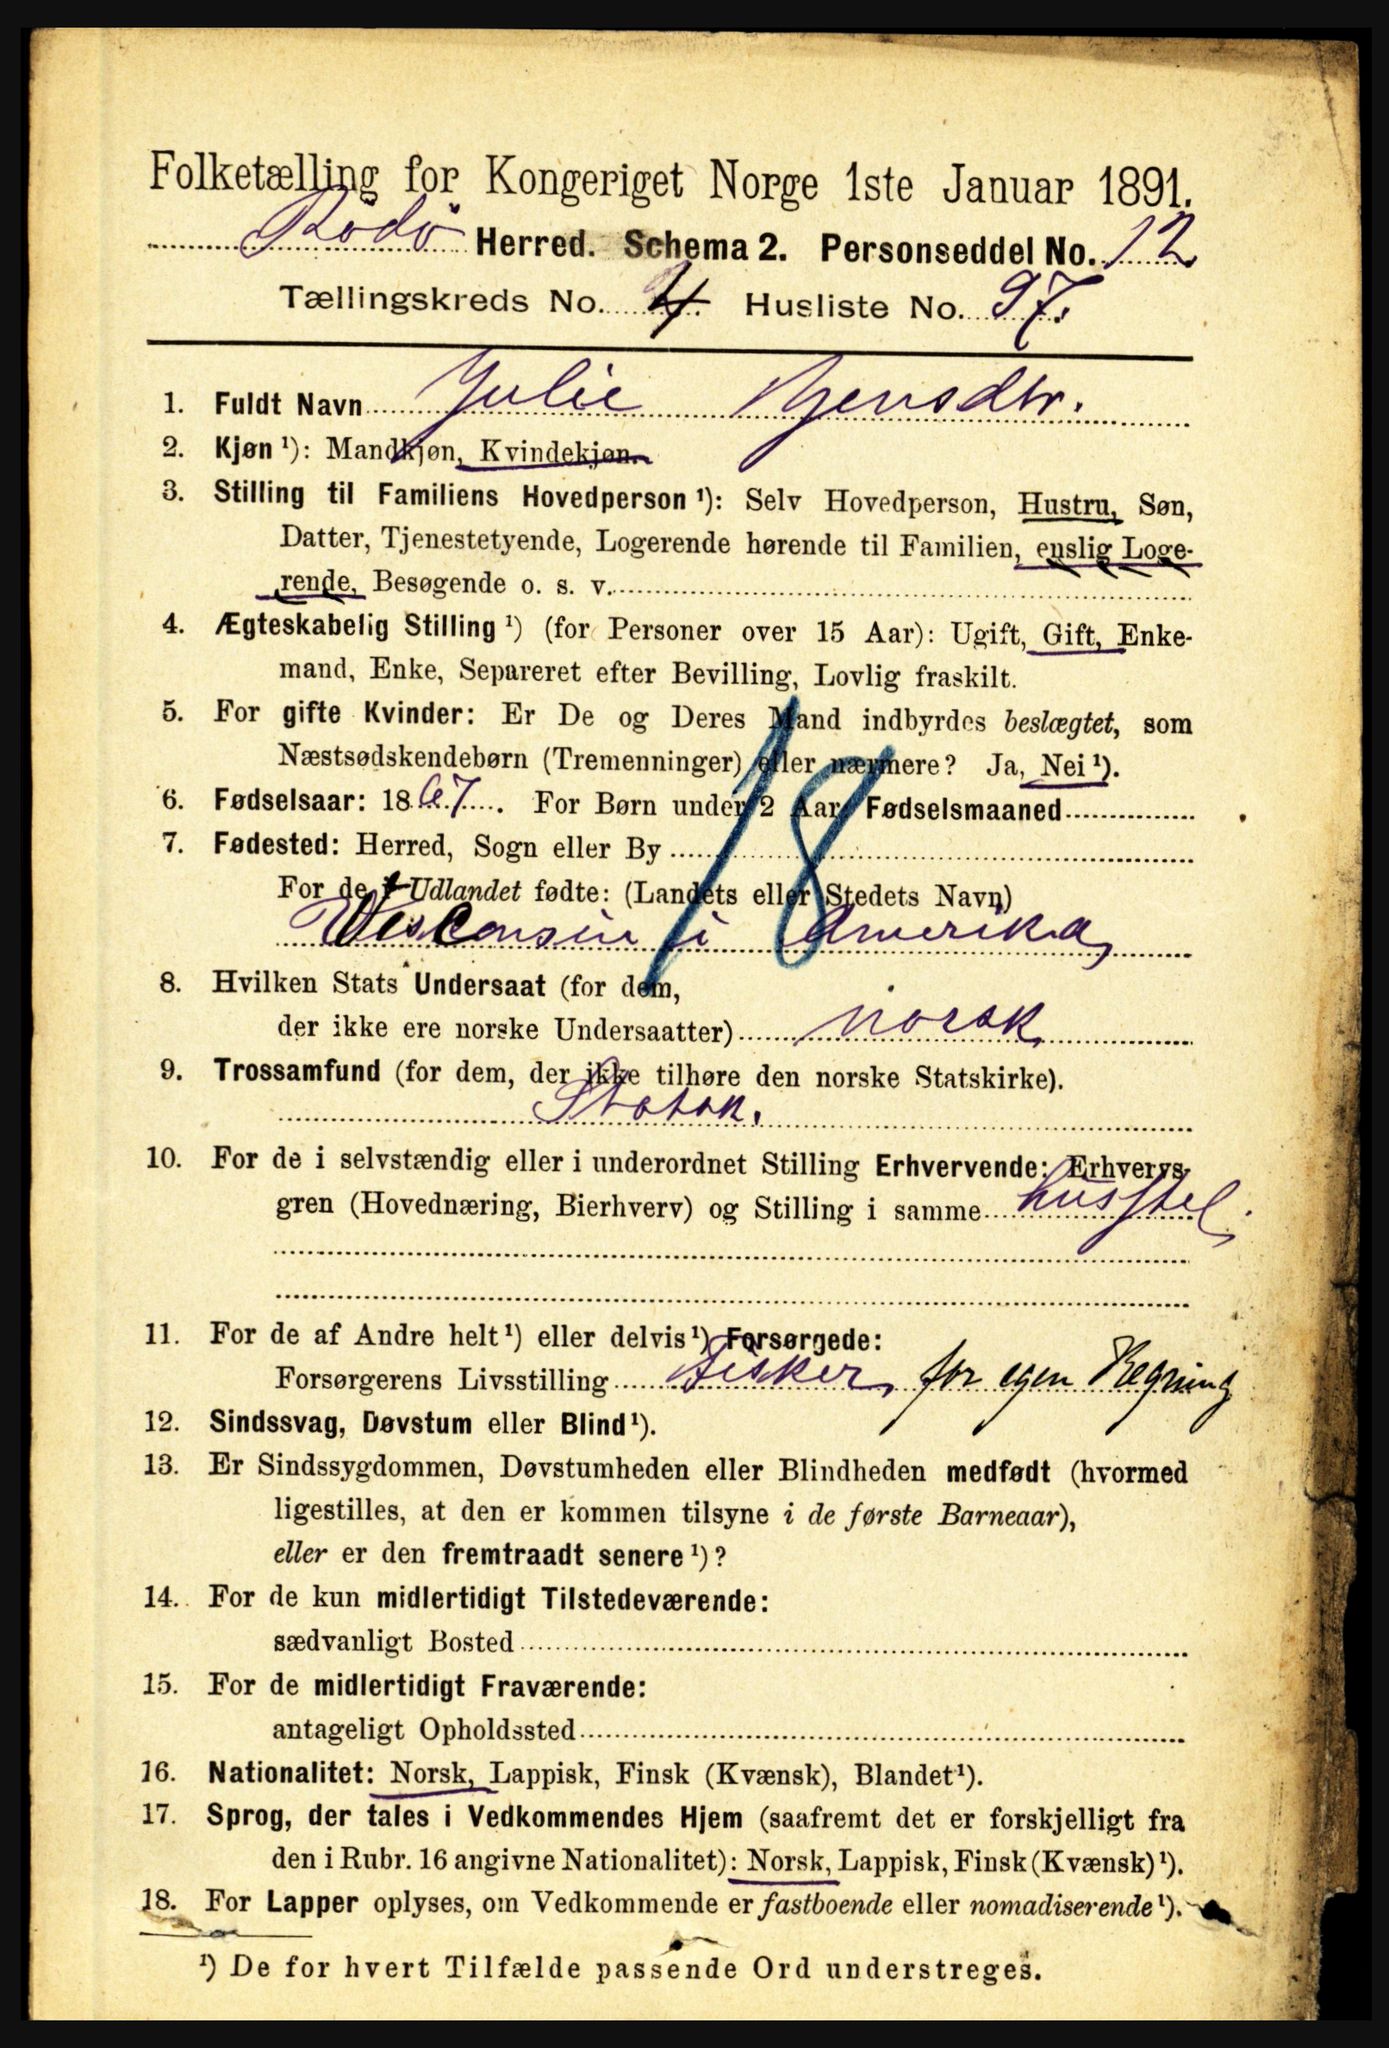 Folketælling for Kongeriget Norge 1ste Januar 1891.
Rödö Herred. Schema 2. Personseddel No. 12
Tællingskreds No. 4. Husliste No. 97.
1. Fuldt Navn Julie Jensdtr.
2. Kjøn ¹): Mandkjøn, Kvindekjøn.
3. Stilling til Familiens Hovedperson ¹): Selv Hovedperson, Hustru, Søn,
Datter, Tjenestetyende, Logerende hørende til Familien, enslig Loge-
rende, Besøgende o. s. v.
4. Ægteskabelig Stilling ¹) (for Personer over 15 Aar): Ugift, Gift, Enke-
mand, Enke, Separeret efter Bevilling, Lovlig fraskilt.
5. For gifte Kvinder: Er De og Deres Mand indbyrdes beslægtet, som
Næstsødskendebørn (Tremenninger) eller nærmere? Ja, Nei ¹).
6. Fødselsaar: 1867. For Børn under 2 Aar: Fødselsmaaned
7. Fødested: Herred, Sogn eller By
18
For de i Udlandet fødte: (Landets eller Stedets Navn)
Visconsin i Amerika
8. Hvilken Stats Undersaat (for dem,
der ikke ere norske Undersaatter) norsk
9. Trossamfund (for dem, der ikke tilhøre den norske Statskirke).
Statsk.
10. For de i selvstændig eller i underordnet Stilling Erhvervende: Erhvervs-
gren (Hovednæring, Bierhverv) og Stilling i samme husstel
11. For de af Andre helt ¹) eller delvis ¹) Forsørgede:
Forsørgerens Livsstilling Fisker for egen Regning
12. Sindssvag, Døvstum eller Blind ¹).
13. Er Sindssygdommen, Døvstumheden eller Blindheden medfødt (hvormed
ligestilles, at den er kommen tilsyne i de første Barneaar),
eller er den fremtraadt senere ¹)?
14. For de kun midlertidigt Tilstedeværende:
sædvanligt Bosted
15. For de midlertidigt Fraværende:
antageligt Opholdssted
16. Nationalitet: Norsk, Lappisk, Finsk (Kvænsk), Blandet ¹).
17. Sprog, der tales i Vedkommendes Hjem (saafremt det er forskjelligt fra
den i Rubr. 16 angivne Nationalitet): Norsk, Lappisk, Finsk (Kvænsk) ¹).
18. For Lapper oplyses, om Vedkommende er fastboende eller nomadiserende ¹).
¹) De for hvert Tilfælde passende Ord understreges.